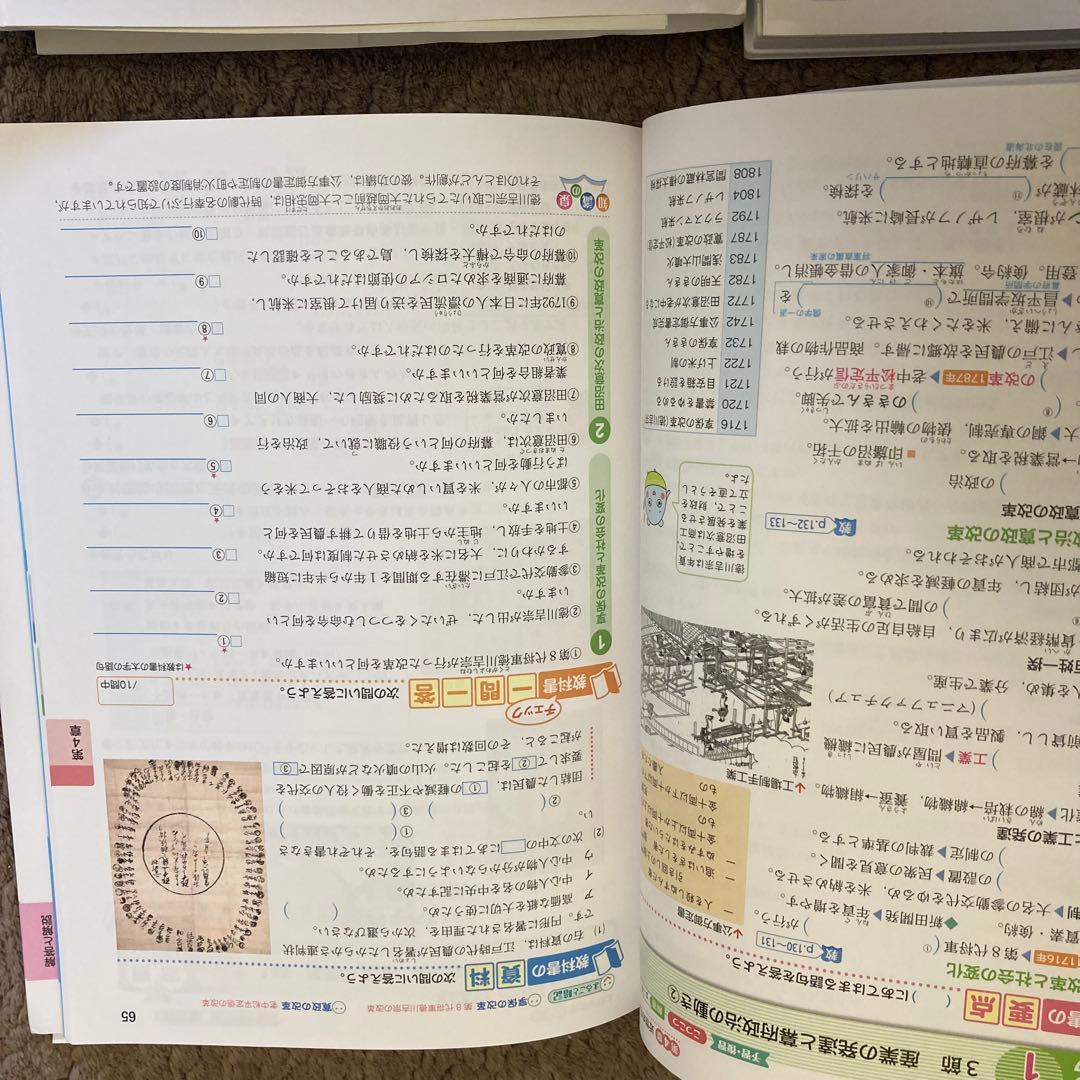 3節 産業の発達と幕府政治の動き②
予習・復習
こつこつ
要点
( )にあてはまる語句を答えよう。
改革と社会の変化
教 p.130~131
1716年
第8代将軍(①
)が行う。
質素・倹約。
◆新田開発▶年貢を増やす。
▶大名の参勤交代をゆるめ、米を納めさせる。
)の設置▶民衆の意見を聞く。
)の制定▶裁判の基準とする。
工業の発達
▶綿の栽培→綿織物。養蚕→絹織物。
工業▶問屋が農民に織機
を前貸しし、製品を買い取る。
)(マニュファクチュア)
人を集め、分業で生産。
百姓一揆
貨幣経済が広まり、自給自足の生活がくずれる。
)の間で貧富の差が拡大。
が団結し、年貢の軽減を求める。
都市で商人がおそわれる。
政治と寛政の改革
教 p.132~133
)の政治
→営業税を取る。
■印旛沼の干拓。
銅の専売制、俵物の輸出を拡大。
(⑧
)のききんで失脚。
の改革 1787年▶老中松平定信が行う。
▶江戸の農民を故郷に帰す。商品作物の栽
きんに備え、米をたくわえさせる。
▶昌平坂学問所で(⑩
)を
儒学の一派
幕府の学問所
登用。倹約令。旗本・御家人の借金帳消し。
将軍直属の家来
ンが根室、レザノフが長崎に来航。
林蔵が(⑪
)を探検
サハリン
)を幕府の直轄地とする。
現在の北海道
↓公事方御定書
一 人を殺しぬすんだ者
引き回しの上
一 追いはぎをした者
一 ぬすみをはたらいた者
金十両以上か
もの
金十両以下か十両以下
もの
↓工場制手工業
徳川吉宗は年貢を増やすことで、田沼意次は商工業を発展させることで、財政を立て直そうとしたよ。
1716 享保の改革(徳川吉宗)
1720 禁書をゆるめる
1721 目安箱を設ける
1722 上げ米の制
1732 享保のききん
1742 公事方御定書完成
1772 田沼意次が老中になる
1782 天明のききん
1783 浅間山大噴火
1787 寛政の改革(松平定信)
1792 ラクスマン来航
1804 レザノフ来航
1808 間宮林蔵の樺太探検
65
まるごと暗記
享保の改革 第8代将軍徳川吉宗の改革
寛政の改革 老中松平定信の改革
教科書の資料 次の問いに答えよう。
(1) 右の資料は、江戸時代の農民が署名したからかさ連判状です。円形に署名された理由を、次から選びなさい。
( )
ア 高価な紙を大切に使うため。
イ 中心人物の名を中央に記すため。
ウ 中心人物が分からないようにするため。
(2) 次の文中の□にあてはまる語句を、それぞれ書きなさい。
①( )
②( ) ③( )
団結した農民は、①の軽減や不正を働く役人の交代を
要求して②を起こした。火山の噴火などが原因で③
が起こると、その回数は増えた。
チェック
教科書 一問一答 次の問いに答えよう。
/10問中
★は教科書の太字の語句
1 享保の改革と社会の変化
①第8代将軍徳川吉宗が行った改革を何といいますか。
②徳川吉宗が出した、ぜいたくをつつしむ命令を何といいますか。
③参勤交代で江戸に滞在する期間を1年から半年に短縮
するかわりに、大名に米を納めさせた制度は何ですか。
④土地を手放し、地主から土地を借りて耕す農民を何と
いいますか。
⑤都市の人々が、米を買いしめた商人をおそって米をう
ばう行動を何といいますか。
2 田沼意次の政治と寛政の改革
⑥田沼意次は、幕府の何という役職に就いて、政治を行
いましたか。
⑦田沼意次が営業税を取るために奨励した、大商人の同
業者組合を何といいますか。
⑧寛政の改革を行ったのはだれですか。
⑨1792年に日本人の漂流民を送り届けて根室に来航し、
幕府に通商を求めたロシアの使節はだれですか。
⑩幕府の命令で樺太を探検し、島であることを確認した
のはだれですか。
□①★
□②
□③
□④★
□⑤★
□⑥
□⑦
□⑧★
□⑨
□⑩
知識の泉
徳川吉宗に取り立てられた大岡越前こと大岡忠相は、時代劇の名奉行ぶりで知られていますが、
それのほとんどが創作。彼の功績は、公事方御定書の制定や町火消制度の設置です。
第4章
解答と解説